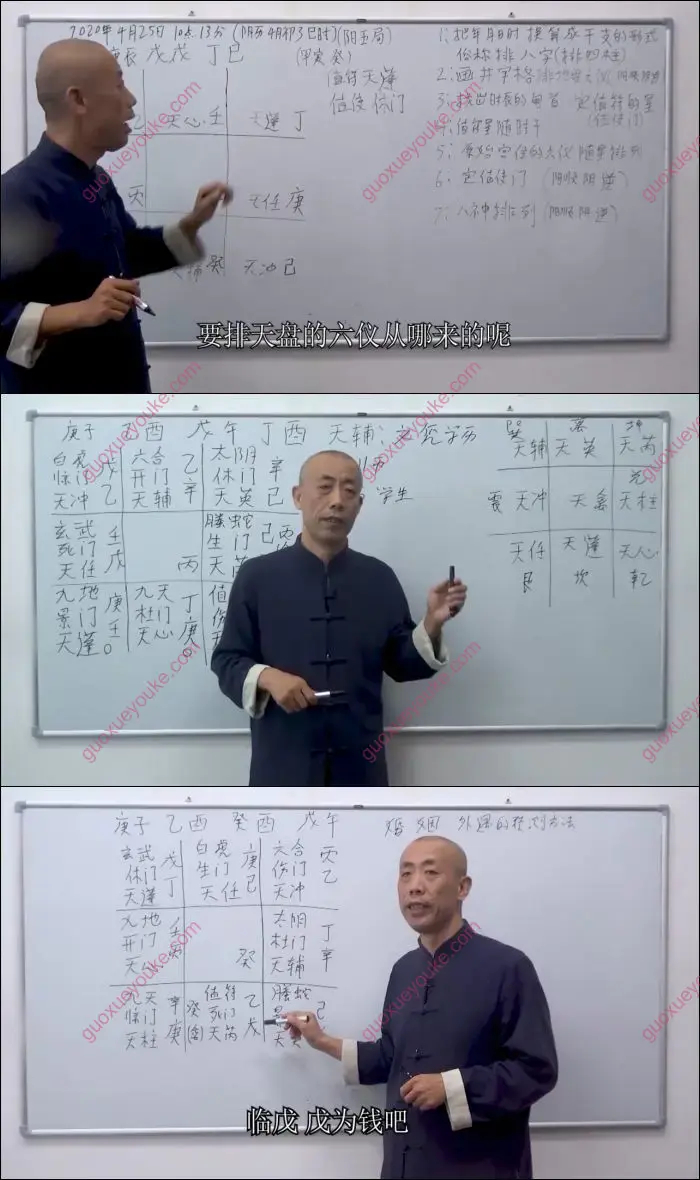 2020年4月25日 10点13分 (阴历4月初3巳时)(阳五局)
庚辰 戊戌 丁巳 (甲寅癸)
值符天蓬
值使休门
天心 壬
天蓬 丁
天任 庚
天冲 己
1: 把年月日时 换算成干支的形式
俗称排八字(排四柱)
2: 画井字格
定值符的星
(值使门)
4: 值符星随时干
5: 原始宫位的六仪随星排列
6: 定值使门 (阳顺阴逆)
7: 八神排列 (阳顺阴逆)
要排天盘的六仪从哪来的呢
guoxueyouke.com
guoxueyouke.com
庚子 乙酉 戊午 丁酉 天辅:
白虎 戊 六合 乙 太阴 辛
惊门 开门 休门
天冲 乙 天辅 辛 天英 己
学生
玄武 壬 螣蛇 己丙
死门 生门
天任 戊 丙
九地 庚 九天 丁 值
景门 杜门
天蓬 壬 天心 庚
巽 离 坤
天辅 天英 天芮
震 天冲 天禽 天柱
天任 天蓬 天心
艮 坎 乾
guoxueyouke.com
guoxueyouke.com
庚子 乙酉 癸酉 戊午 婚姻 外遇的预测方法
玄武 戊 白虎 庚 六合 丙
休门 生门 伤门
天蓬 丁 天任 己 天冲 乙
九地 壬 太阴 丁
开门 杜门
天心 癸 天辅 辛
九天 辛 值符 乙 螣蛇 己
惊门 癸 死门
天柱 庚 天芮 戊
临戊 戊为钱吧
guoxueyouke.com
guoxueyouke.com